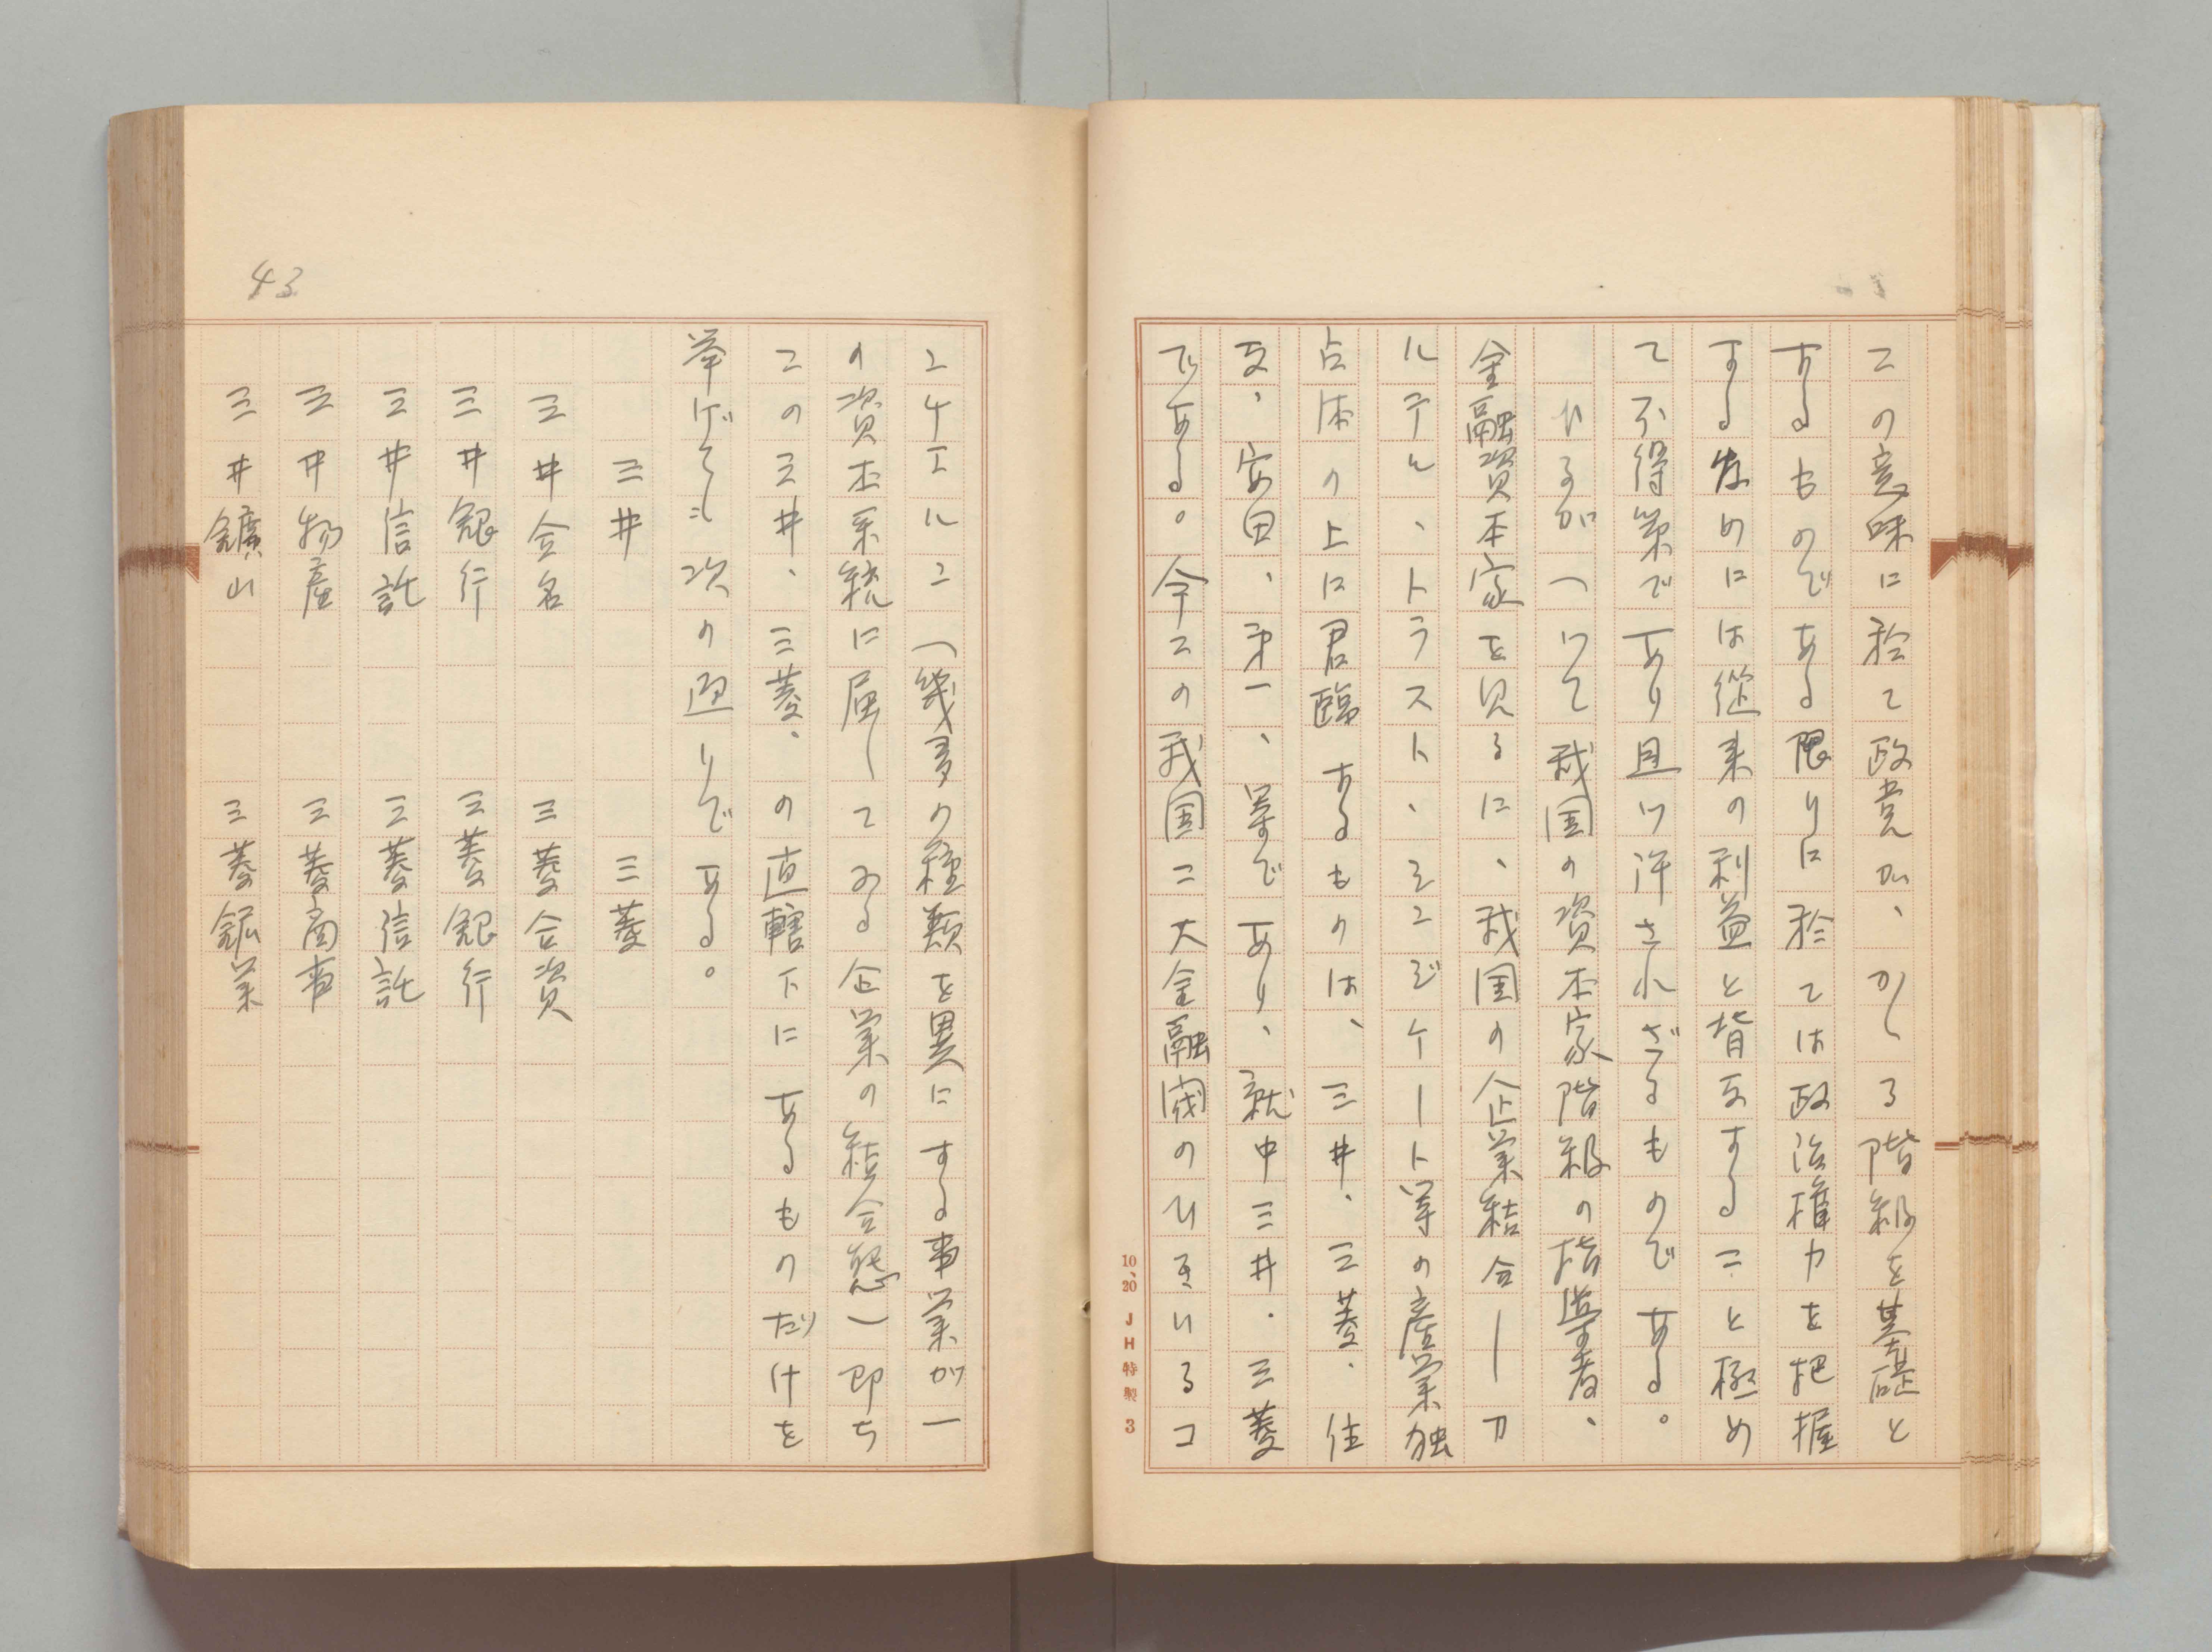 この意味に於て政党が、かゝる階級を基礎と
するものである限りに於ては政治権力を把握
する為めには従来の利益と背反すること極め
て不得策であり且つ許されざるものである。
ひるがへつて我国の資本家階級の指導者、
金融資本家を見るに、我国の企業結合―カ
ルテル、トラスト、シンジケート等の産業独
占体の上に君臨するものは、三井、三菱、住
友、安田、第一、等であり、就中三井・三菱
である。今この我国二大金融閥のひきいるコ
ンツエルン（幾多の種類を異にする事業が一
の資本系統に属してゐる企業の結合態）即ち
この三井、三菱、の直轄下にあるものだけを
挙げても次の通りである。
三井　　　三菱
三井合名　　　三菱合資
三井銀行　　　三菱銀行
三井信託　　　三菱信託
三井物産　　　三菱商事
三井鑛山　　　三菱鉱業
43
10、20 JH特製 3